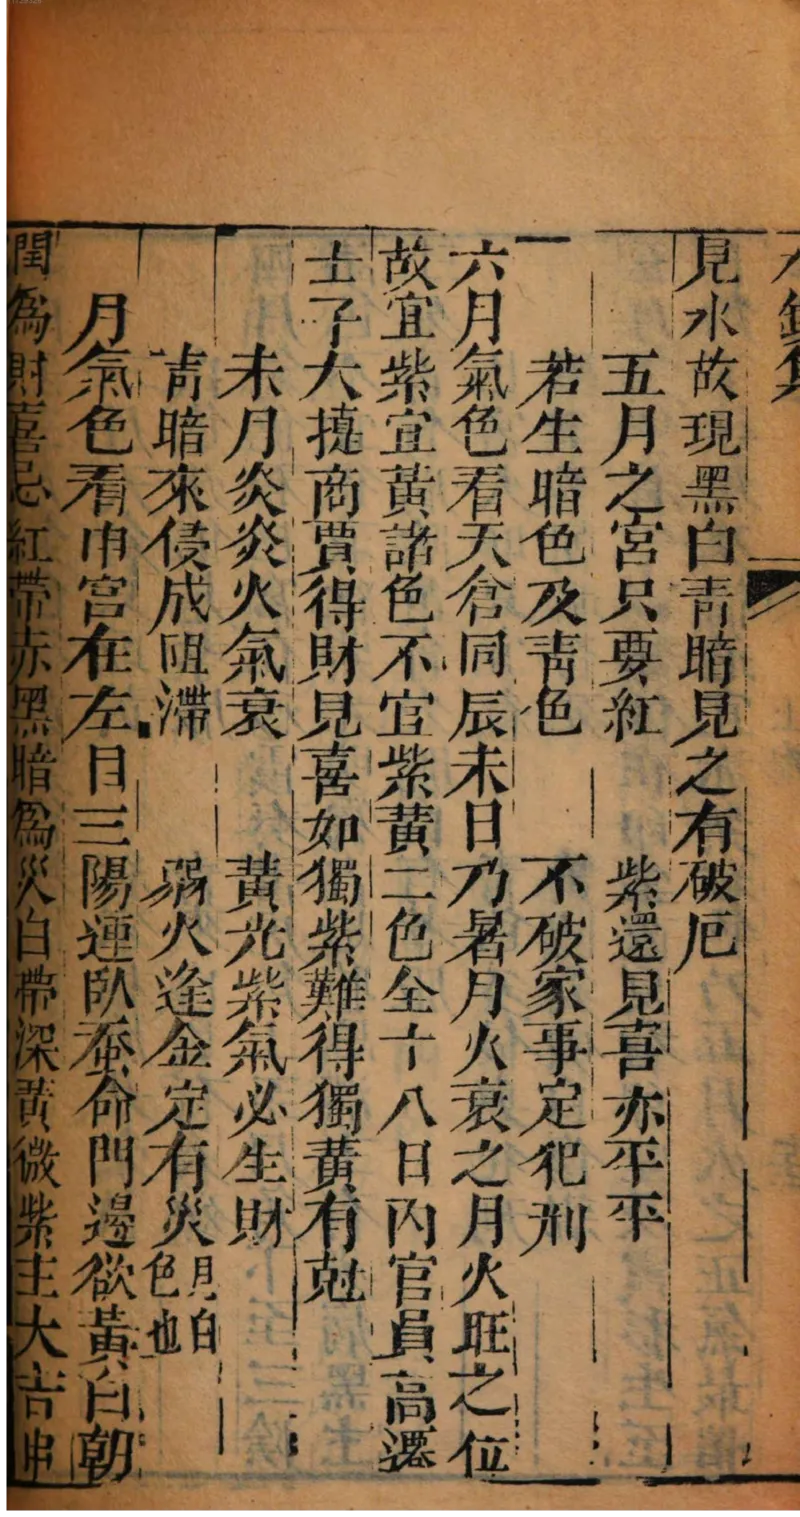 見水故現黑白青暗見之有破厄
五月之宮只要紅　紫還見喜亦平平
若生暗色及青色　不破家事定犯刑
六月氣色看天倉同辰未日乃暑月火衰之月火旺之位
故宜紫宜黃諸色不宜紫黃二色全十八日內官員高遷
士子大捷商賈得財見喜如獨紫難得獨黃有尅
未月炎炎火氣衰　黃光紫氣必生財
青暗來侵成阻滯　弱火逢金定有災見白色也
月氣色看申宮在左目三陽連臥蚕命門邊欲黃白朝
閏爲財喜忌紅帶赤黑暗爲災白帶深黃微紫主大吉申